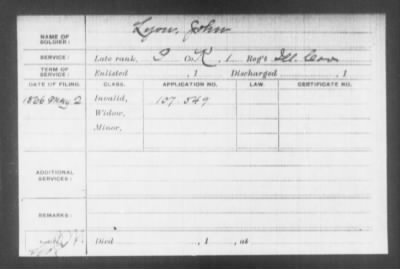 NAME OF SOLDIER: Lyon, John
SERVICE: Late rank, P Co. K, 1 Reg't Ill. Cav.
TERM OF SERVICE: Enlisted , 1 Discharged , 1
DATE OF FILING. CLASS. APPLICATION NO. LAW. CERTIFICATE NO.
1866 May 2 Invalid, 107.549
Widow,
Minor,
ADDITIONAL SERVICES:
REMARKS:
Died , 1 , at